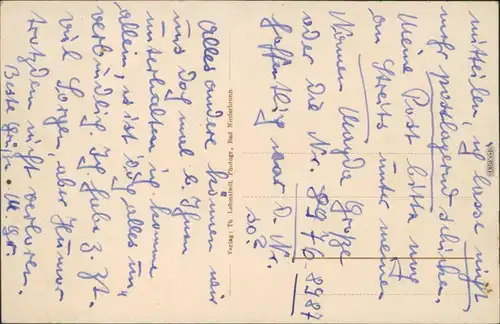 mitteilen, ich lasse nicht
mehr postlagernd schicken.
Meine Post bitte nur
an Streits unter meinem
Namen Magda Große
oder die Nr. 8976-8987
Hoffentlich war d. Nr.
so?
Alles andere können wir
uns doch mal b. Ihnen
unterhalten, ich komme
allein, es ist doch alles un-
verbindlich. Ich habe z. Zt.
viel Sorgen, aber Humor
trotzdem nicht verloren.
Beste Grüße • M. Gr.
Verlag: Th. Photogr., Bad Niederbronn